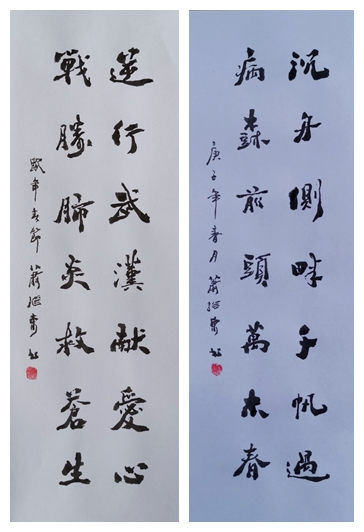 沉舟側畔千帆過
病森前頭萬木春
庚子年春月
逆行武漢献愛心
戰勝肺炎救蒼生
鼠年春節